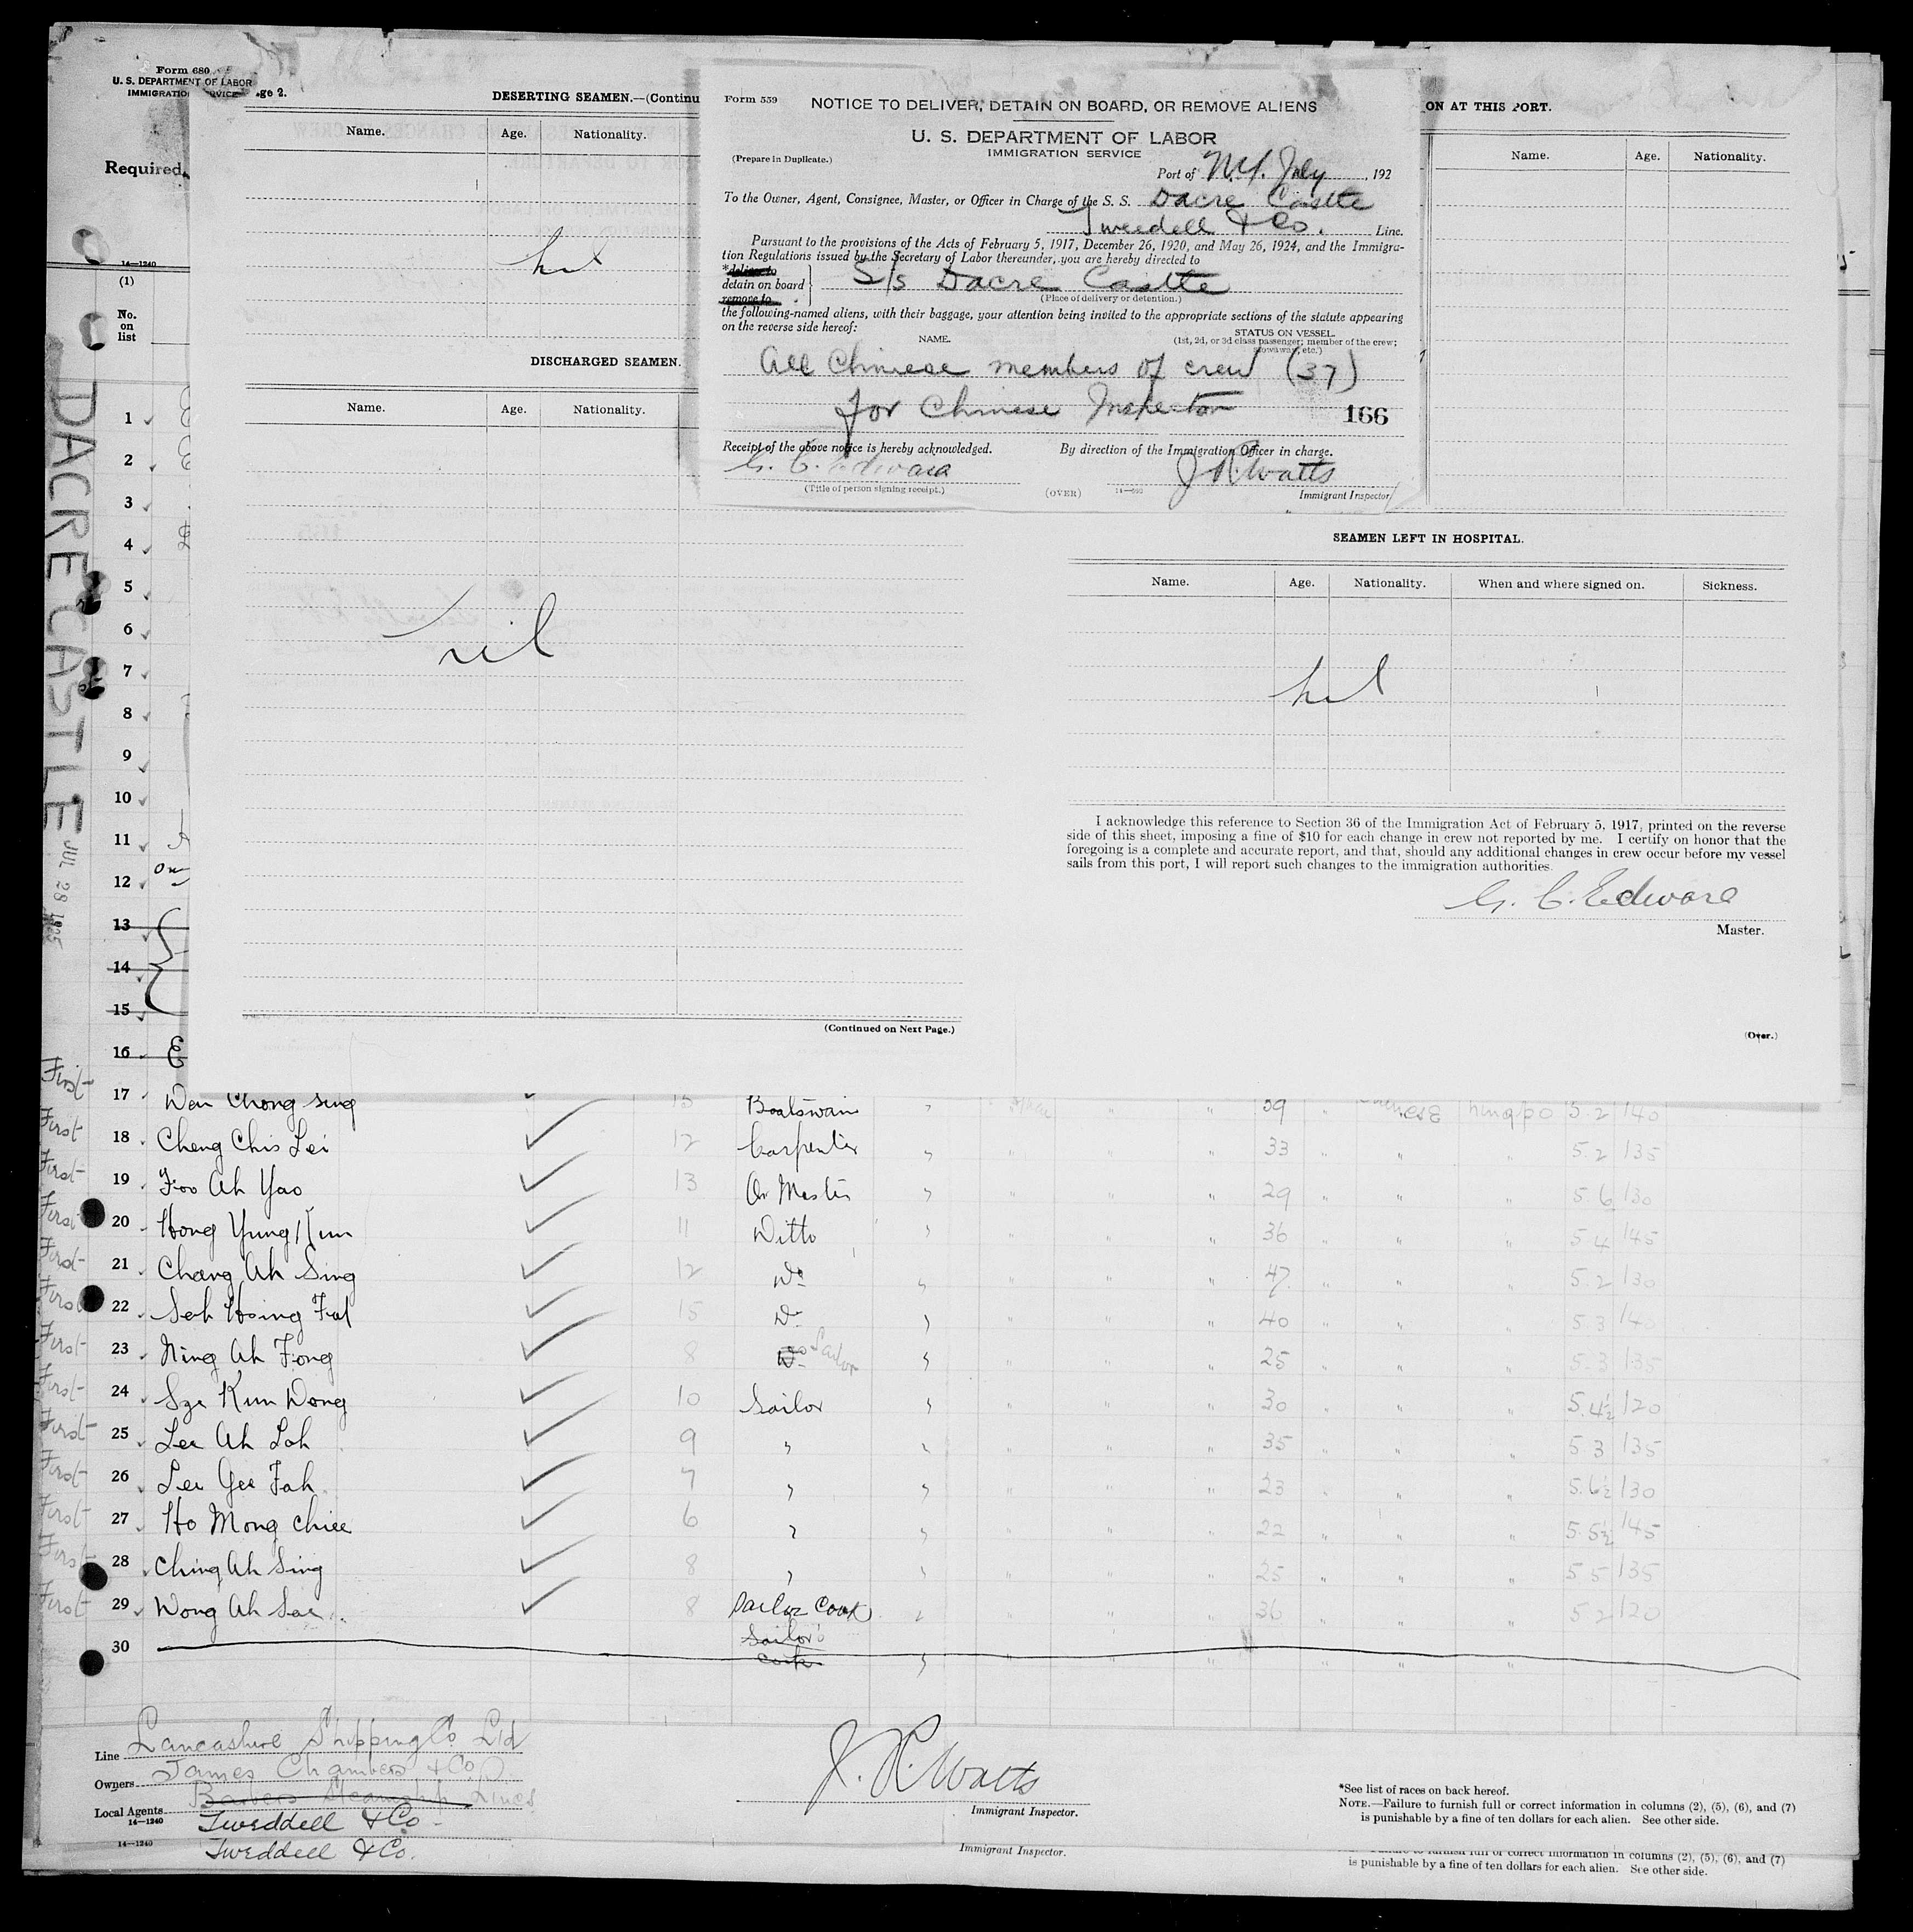 Form 680
U. S. DEPARTMENT OF LABOR
IMMIGRATION SERVICE
Required
14—1240
(1)
No.
on
list
DACRE CASTLE JUL 28 1925
ge 2.
DESERTING SEAMEN.—(Continu
Name. Age. Nationality.
nil
DISCHARGED SEAMEN.
Name. Age. Nationality.
nil
(Continued on Next Page.)
Form 559
NOTICE TO DELIVER, DETAIN ON BOARD, OR REMOVE ALIENS
U. S. DEPARTMENT OF LABOR
IMMIGRATION SERVICE
(Prepare in Duplicate.)
Port of N.Y. July, 192
To the Owner, Agent, Consignee, Master, or Officer in Charge of the S. S. Dacre Castle
Tweedell & Co. Line.
Pursuant to the provisions of the Acts of February 5, 1917, December 26, 1920, and May 26, 1924, and the Immigra-
tion Regulations issued by the Secretary of Labor thereunder, you are hereby directed to
*deliver to
detain on board
remove to
S/s Dacre Castle
(Place of delivery or detention.)
the following-named aliens, with their baggage, your attention being invited to the appropriate sections of the statute appearing
on the reverse side hereof:
NAME. STATUS ON VESSEL.
(1st, 2d, or 3d class passenger; member of the crew;
stowaway, etc.)
All Chinese members of crew (37)
for Chinese Inspector 166
Receipt of the above notice is hereby acknowledged. By direction of the Immigration Officer in charge.
G. C. Edward J R Watts
(Title of person signing receipt.) (OVER) Immigrant Inspector
ON AT THIS PORT.
Name. Age. Nationality.
SEAMEN LEFT IN HOSPITAL.
Name. Age. Nationality. When and where signed on. Sickness.
nil
I acknowledge this reference to Section 36 of the Immigration Act of February 5, 1917, printed on the reverse
side of this sheet, imposing a fine of $10 for each change in crew not reported by me. I certify on honor that the
foregoing is a complete and accurate report, and that, should any additional changes in crew occur before my vessel
sails from this port, I will report such changes to the immigration authorities.
G. C. Edward
Master.
(Over.)
1
2
3
4
5
6
7
8
9
10
11
12
13
14
15
16 E
First 17 Wan Chong Sing 15 Boatswain 39 Chinese Ningpo 5.2 140
First 18 Cheng Chis Lei 12 Carpenter " " 33 " " " 5.2 135
First 19 Foo Ah Yao 13 Qr Master " " 29 " " " 5.6 130
First 20 Hong Yung Kun 11 Ditto " " 36 " " " 5.4 145
First 21 Chang Ah Sing 12 Do " " 47 " " " 5.2 130
First 22 Seh Hsing Fat 15 Do " " 40 " " " 5.3 140
First 23 Ning Ah Fong 8 Do Sailor " " 25 " " " 5.3 135
First 24 Sze Kun Dong 10 Sailor " " 30 " " " 5.4½ 120
First 25 Lee Ah Loh 9 " " " 35 " " " 5 3 135
First 26 Lee Gee Fah 7 " " " 23 " " " 5.6½ 130
First 27 Ho Mong Chiee 6 " " " 22 " " " 5.5½ 145
First 28 Ching Ah Sing 8 " " " 25 " " " 5 5 135
First 29 Wong Ah Sae 8 Sailor Cook " " 36 " " " 5 2 120
30 Sailor's
Cook
Line Lancashire Shipping Co Ltd
Owners James Chambers & Co.
Local Agents Barbers Steamship Lines
14—1240 Tweddell & Co
14—1240 Tweddell & Co.
J. R. Watts
Immigrant Inspector.
Immigrant Inspector.
*See list of races on back hereof.
NOTE.—Failure to furnish full or correct information in columns (2), (5), (6), and (7)
is punishable by a fine of ten dollars for each alien. See other side.
full or correct information in columns (2), (5), (6), and (7)
is punishable by a fine of ten dollars for each alien. See other side.